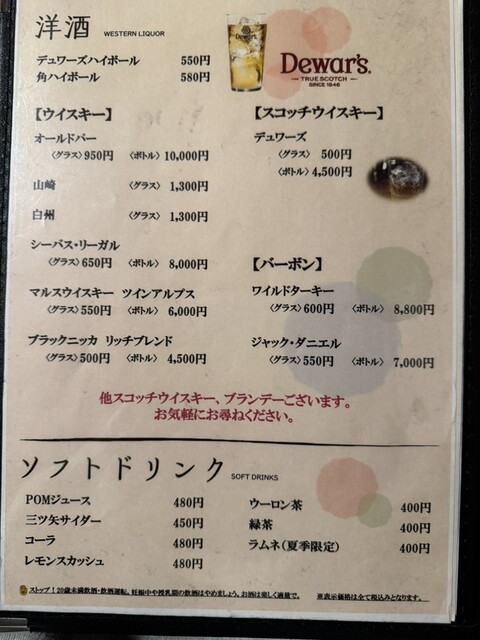 洋酒 WESTERN LIQUOR
デュワーズハイボール 550円
角ハイボール 580円
Dewar's
Dewar's.
TRUE SCOTCH
SINCE 1846
【ウイスキー】
オールドパー
〈グラス〉950円 〈ボトル〉10,000円
山崎 〈グラス〉1,300円
白州 〈グラス〉1,300円
シーバス・リーガル
〈グラス〉650円 〈ボトル〉8,000円
マルスウイスキー ツインアルプス
〈グラス〉550円 〈ボトル〉6,000円
ブラックニッカ リッチブレンド
〈グラス〉500円 〈ボトル〉4,500円
【スコッチウイスキー】
デュワーズ
〈グラス〉 500円
〈ボトル〉4,500円
【バーボン】
ワイルドターキー
〈グラス〉600円 〈ボトル〉8,800円
ジャック・ダニエル
〈グラス〉550円 〈ボトル〉7,000円
他スコッチウイスキー、ブランデーございます。
お気軽にお尋ねください。
ソフトドリンク SOFT DRINKS
POMジュース 480円
三ツ矢サイダー 450円
コーラ 480円
レモンスカッシュ 480円
ウーロン茶 400円
緑茶 400円
ラムネ(夏季限定) 400円
ストップ!20歳未満飲酒・飲酒運転。妊娠中や授乳期の飲酒はやめましょう。お酒は楽しく適量で。 ※表示価格は全て税込みとなります。